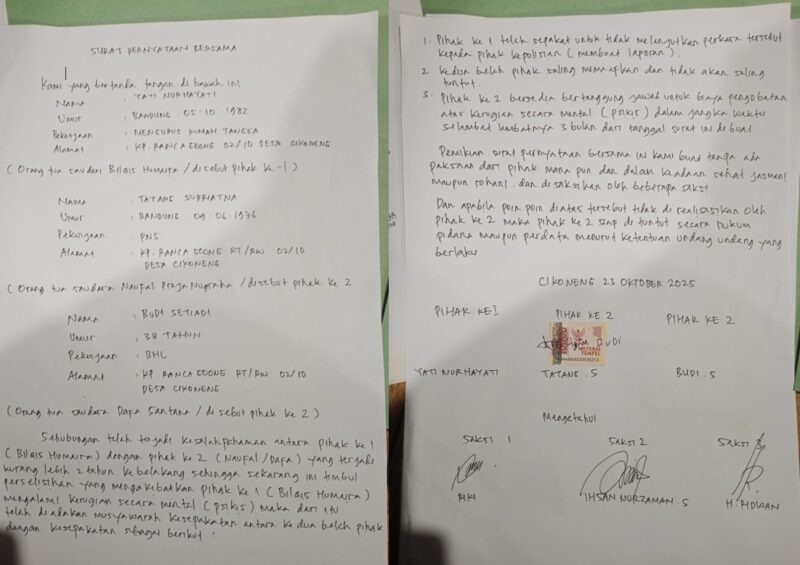 SURAT PERNYATAAN BERSAMA
Kami yang bertanda tangan di bawah ini
Nama : YATI NURHAYATI
Umur : BANDUNG . 05-10-1982
Pekerjaan : MENGURUS RUMAH TANGGA
Alamat : KP. RANCA GOONG 02/10 DESA CIKONENG
(Orang tua saudari Bilqis Humaira / disebut pihak ke-1)
Nama : TATANG SUPRIATNA
Umur : BANDUNG . 09-06-1976
Pekerjaan : PNS
Alamat : KP. RANCA GOONG RT/RW 02/10
DESA CIKONENG
(Orang tua saudara Naufal Praja Nugraha / disebut pihak ke 2
Nama : BUDI SETIADI
Umur : 38 TAHUN
Pekerjaan : BHL
Alamat : KP. RANCA GOONG RT/RW 02/10
DESA CIKONENG
(Orang tua saudara Dafa Santana / di sebut pihak ke 2)
Sehubungan telah terjadi kesalahpahaman antara pihak ke 1
(Bilqis Humaira) dengan pihak ke 2 (Naufal / Dafa) yang terjadi
kurang lebih 2 tahun ke belakang sehingga sekarang ini timbul
perselisihan yang mengakibatkan pihak ke 1 (Bilqis Humaira)
mengalami kerugian secara mental (psikis) maka dari itu
telah di adakan musyawarah kesepakatan antara ke dua belah pihak
dengan kesepakatan sebagai berikut :
1. Pihak ke 1 telah sepakat untuk tidak melanjutkan perkara tersebut
kepada pihak kepolisian (membuat laporan).
2. Kedua belah pihak saling memaafkan dan tidak akan saling
tuntut.
3. Pihak ke 2 bersedia bertanggung jawab untuk biaya pengobatan
atas kerugian secara mental (psikis) dalam jangka waktu
selambat lambatnya 3 bulan dari tanggal surat ini di buat
Demikian surat pernyataan bersama ini kami buat tanpa ada
paksaan dari pihak mana pun dan dalam keadaan sehat jasmani
maupun rohani. dan disaksikan oleh beberapa saksi
Dan apabila poin poin diatas tersebut tidak di realisasikan oleh
pihak ke 2 maka pihak ke 2 siap di tuntut secara hukum
pidana maupun perdata menurut ketentuan undang undang yang
berlaku
CIKONENG 23 OKTOBER 2025
PIHAK KE I PIHAK KE 2 PIHAK KE 2
METERAI
TEMPEL
BUDI
YATI NURHAYATI TATANG . S BUDI . S
Mengetahui
SAKSI 1 SAKSI 2 SAKSI 3
RIKI IHSAN NURZAMAN . S H. RIDWAN